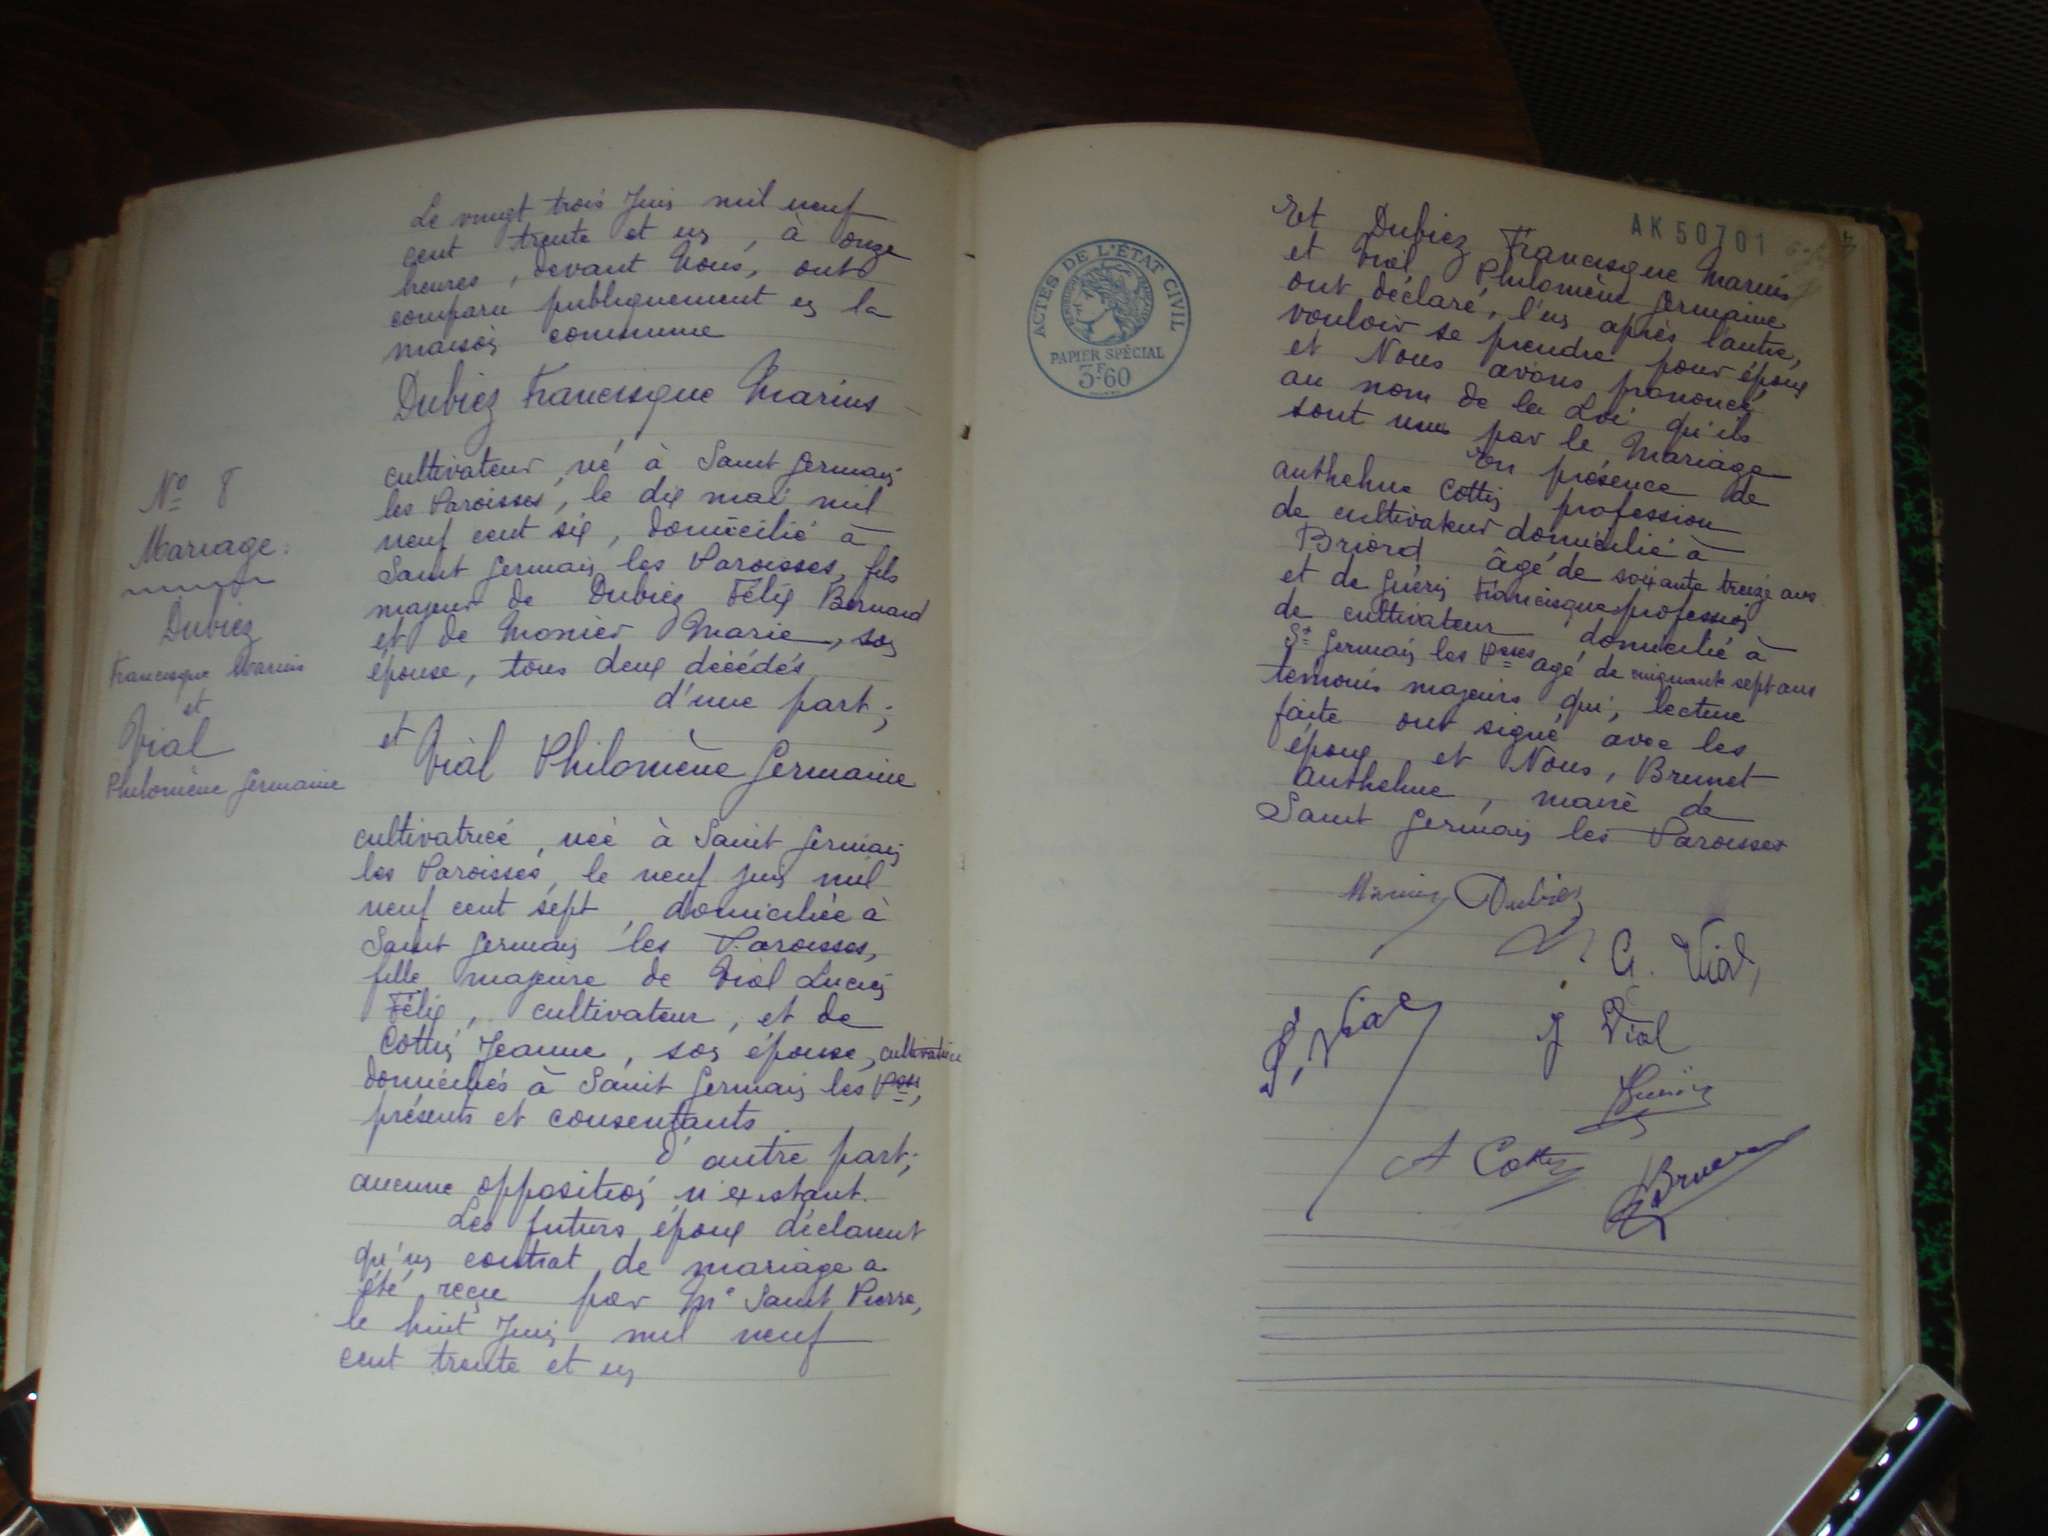 Le vingt trois Juin mil neuf
cent trente et un, à onze
heures, devant Nous, ont
comparu publiquement en la
maison commune
Dubiez Francisque Marius
cultivateur, né à Saint Germain
les Paroisses, le dix mai mil
neuf cent six, domicilié à
Saint Germain les Paroisses, fils
majeur de Dubiez Félix Bernard
et de Monier Marie, son
épouse, tous deux décédés
d'une part;
et Vial Philomène Germaine
cultivatrice, née à Saint Germain
les Paroisses, le neuf juin mil
neuf cent sept, domiciliée à
Saint Germain les Paroisses,
fille majeure de Vial Lucien
Félix, cultivateur, et de
Cottin Jeanne, son épouse, cultivatrice
domiciliés à Saint Germain les Pses,
présents et consentants
d'autre part;
aucune opposition n'existant.
Les futurs époux déclarent
qu'un contrat de mariage a
été reçu par Me Saint Pierre,
le huit Juin mil neuf
cent trente et un
No 8
Mariage:
Dubiez
Francisque Marius
et
Vial
Philomène Germaine
ACTES DE L'ÉTAT CIVIL
PAPIER SPÉCIAL
3F.60
AK 50701
Et Dubiez Francisque Marius
et Vial Philomène Germaine
ont déclaré, l'un après l'autre,
vouloir se prendre pour époux
et Nous avons prononcé
au nom de la Loi qu'ils
sont unis par le Mariage
En présence de
Anthelme Cottin profession
de cultivateur domicilié à
Briord âgé de soixante treize ans
et de Guérin Francisque profession
de cultivateur domicilié à
St Germain les Pses agé de cinquante sept ans
temoins majeurs qui, lecture
faite ont signé avec les
époux et Nous, Brunet
Anthelme, maire de
Saint Germain les Paroisses
Marius Dubiez
G. Vial
Vial
J Vial
Guérin
A Cottin
Brunet